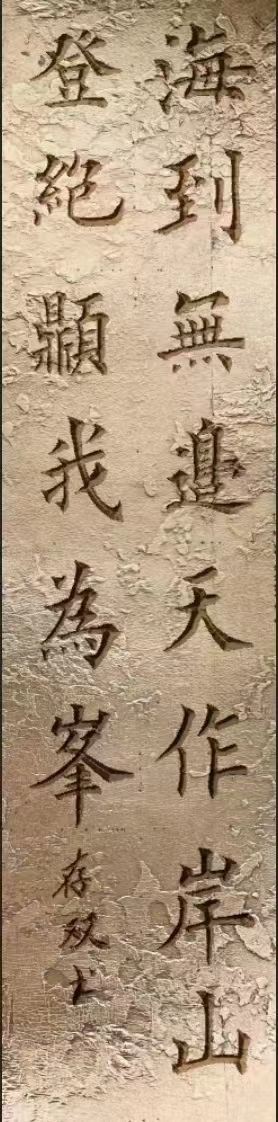 海到無邊天作岸山
登絕𩕢我為峯
存双